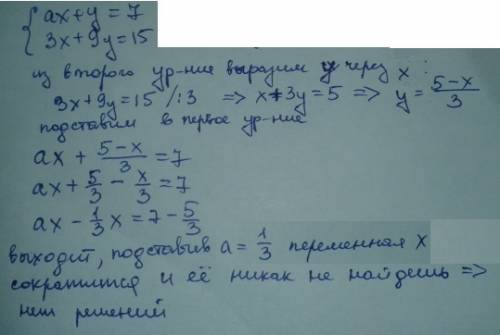 { ax+y=7
3x+9y=15
из второго ур-ние выразим y через x :
3x+9y=15 /:3 => x+3y=5 => y= (5-x)/3
подставим в первое ур-ние
ax + (5-x)/3 = 7
ax + 5/3 - x/3 = 7
ax - 1/3 x = 7 - 5/3
выходит, подставив a = 1/3 переменная x
сократится и её никак не найдешь =>
нет решений